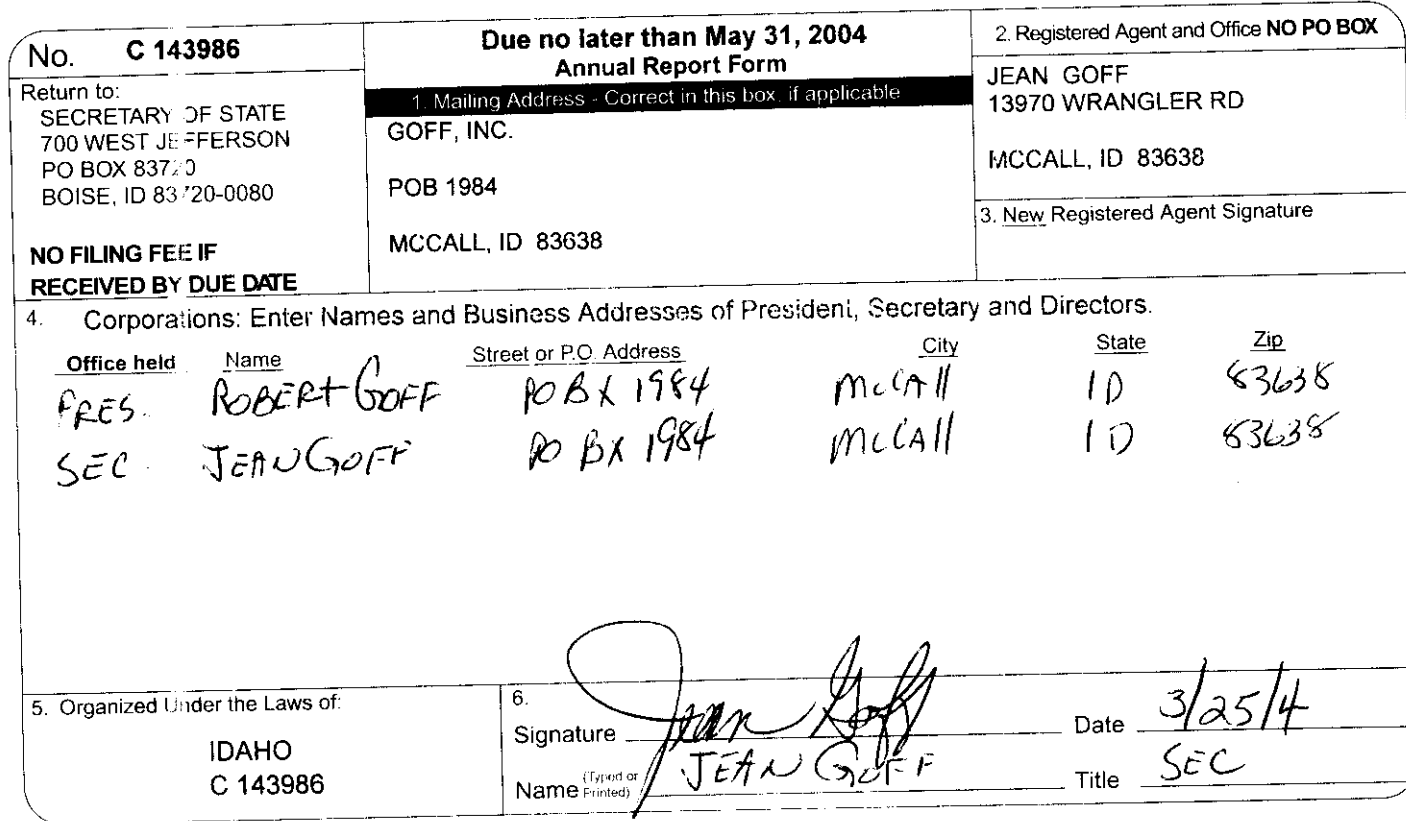 No. C 143986
Return to:
SECRETARY OF STATE
700 WEST JEFFERSON
PO BOX 83720
BOISE, ID 83720-0080
NO FILING FEE IF
RECEIVED BY DUE DATE
Due no later than May 31, 2004
Annual Report Form
1. Mailing Address - Correct in this box, if applicable
GOFF, INC.
POB 1984
MCCALL, ID 83638
2. Registered Agent and Office NO PO BOX
JEAN GOFF
13970 WRANGLER RD
MCCALL, ID 83638
3. New Registered Agent Signature
4. Corporations: Enter Names and Business Addresses of President, Secretary and Directors.
Office held Name Street or P.O. Address City State Zip
PRES. ROBERT GOFF PO BX 1984 McCAll ID 83638
SEC. JEAN GOFF PO BX 1984 McCAll ID 83638
5. Organized Under the Laws of:
IDAHO
C 143986
6.
Signature Jean Goff Date 3/25/4
Name (Typed or Printed) JEAN GOFF Title SEC